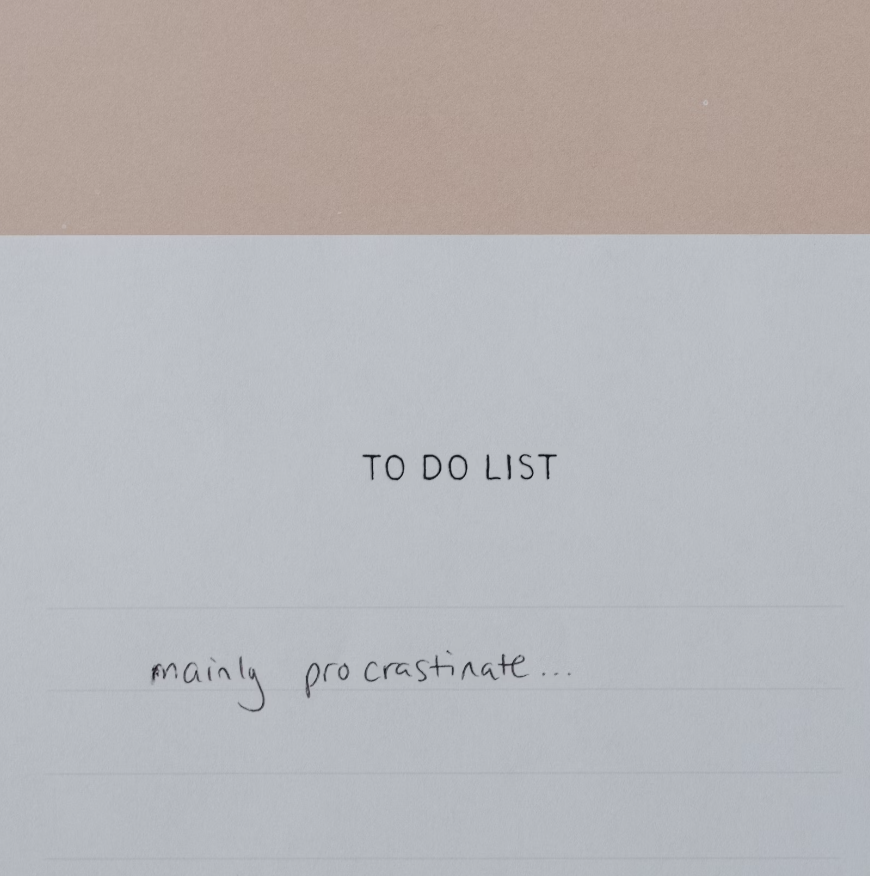 TO DO LIST
mainly procrastinate...